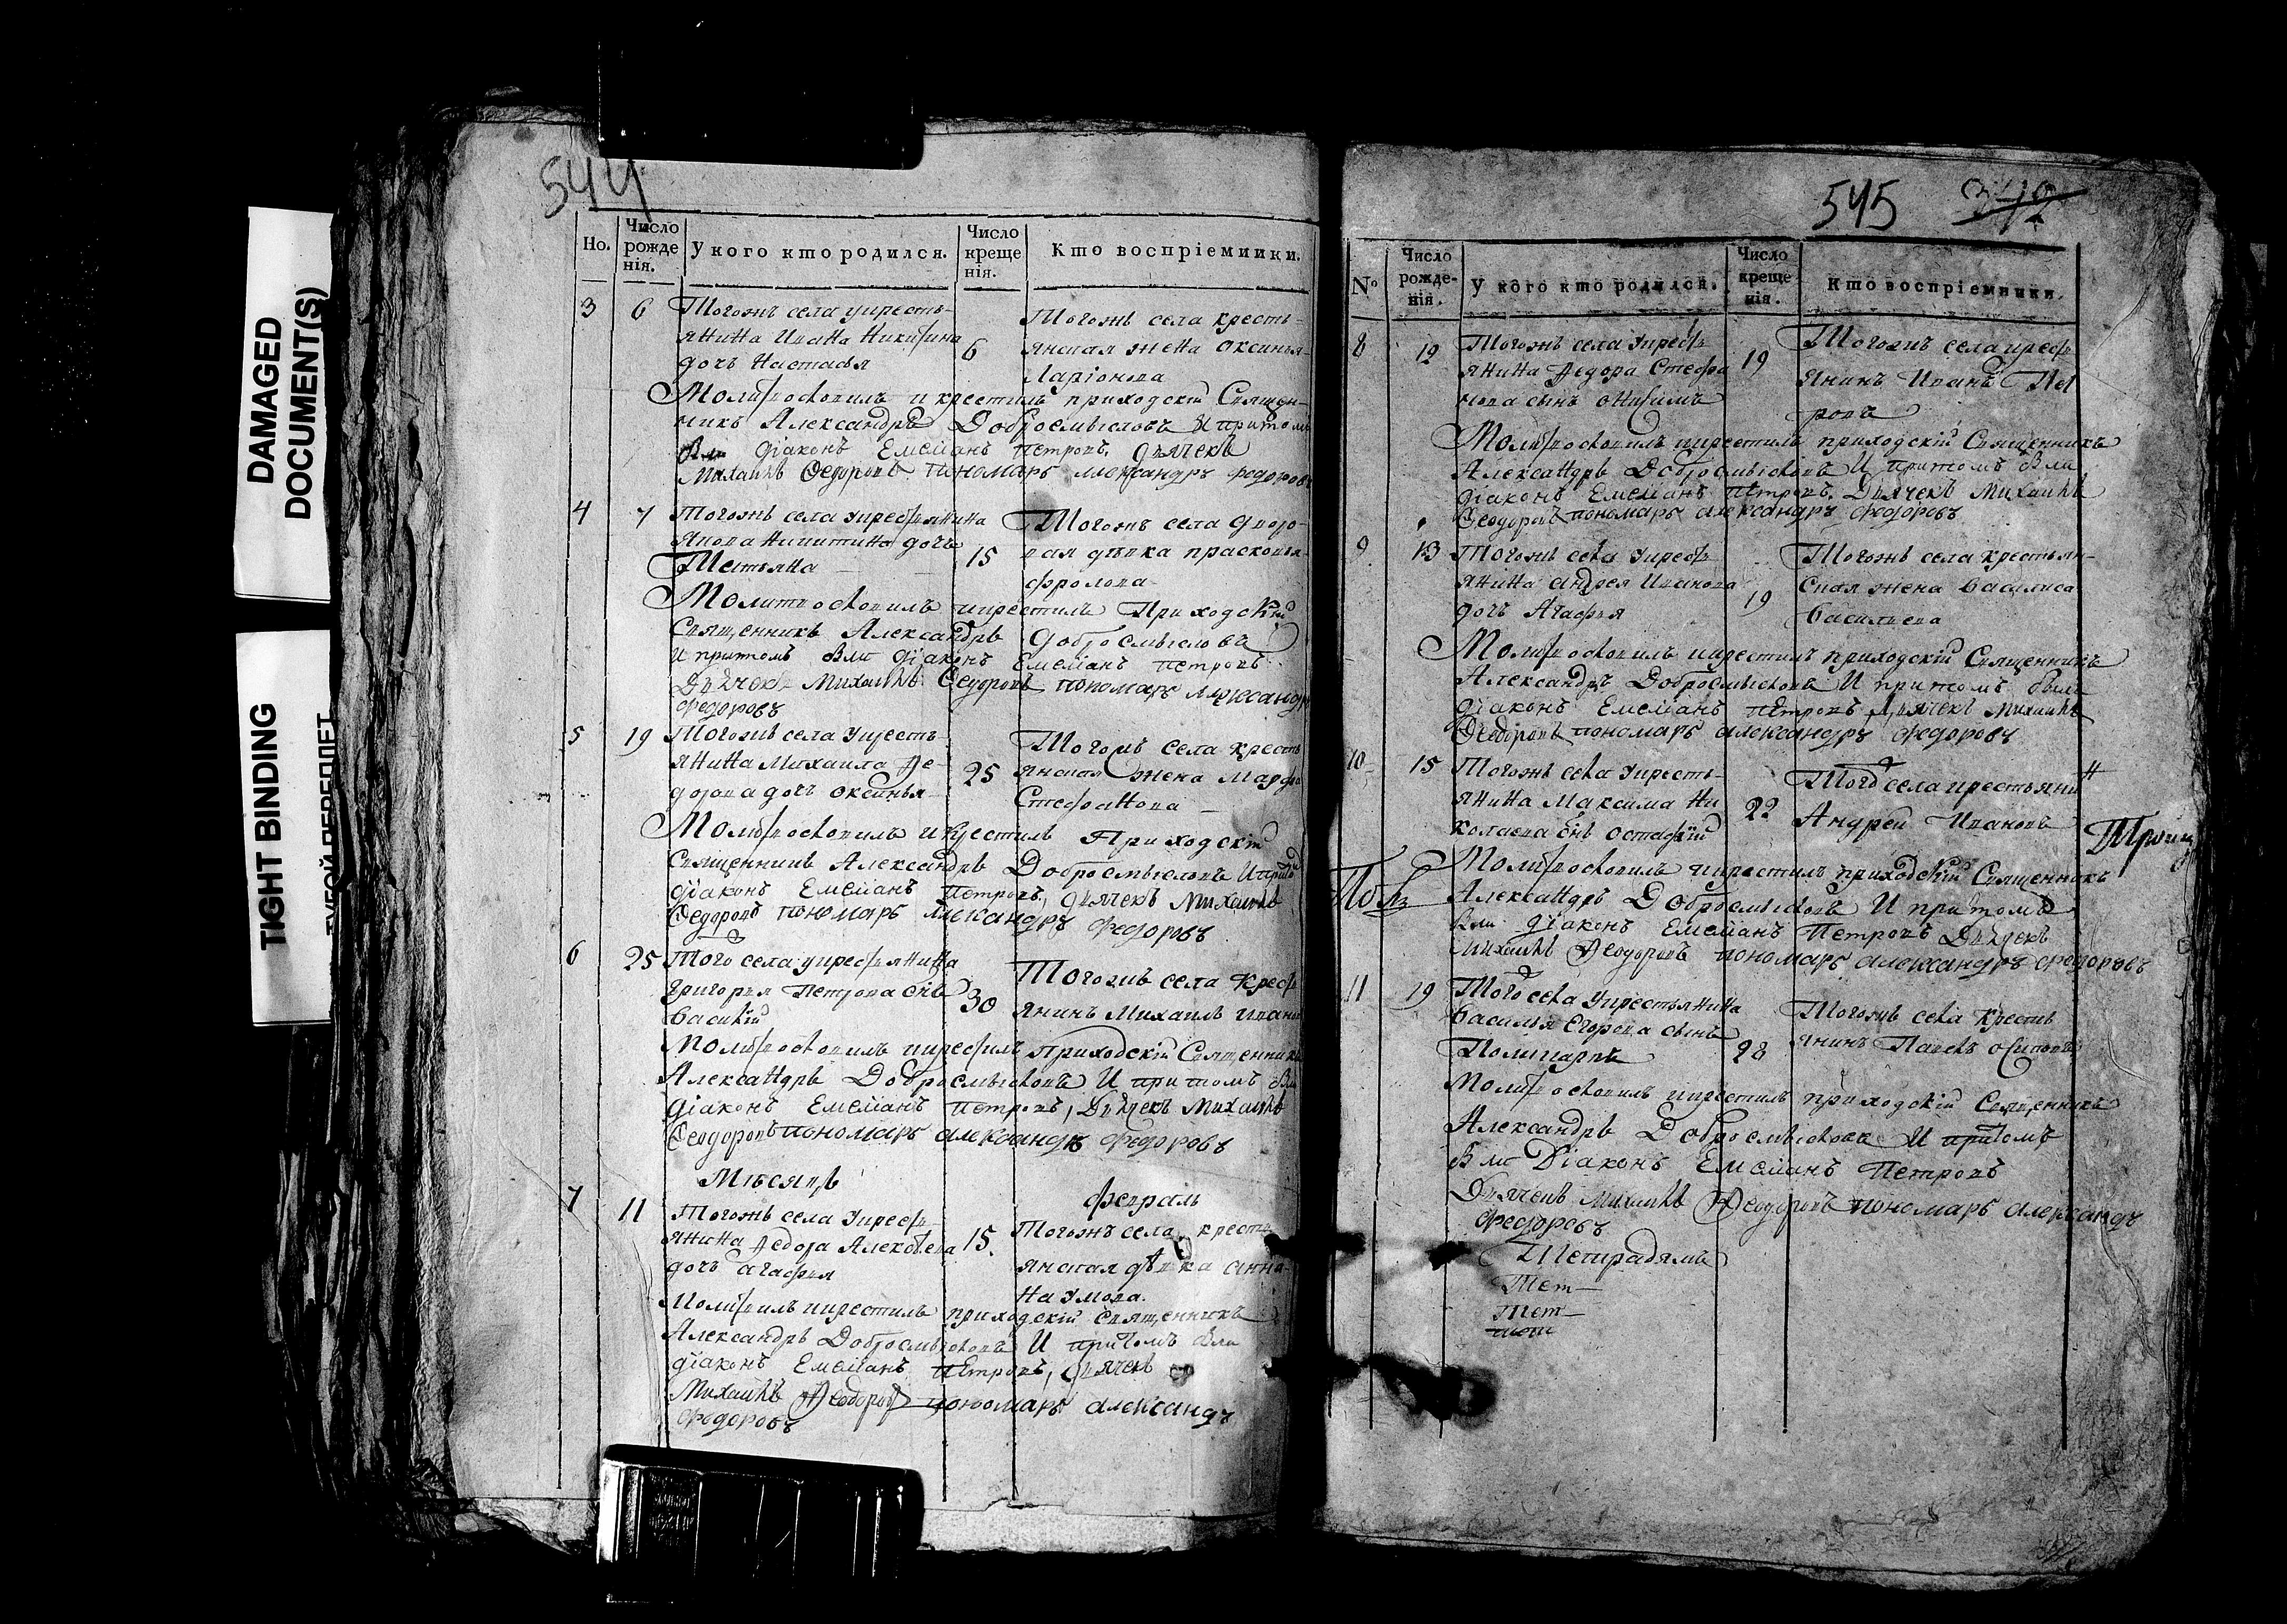 DAMAGED
DOCUMENT(S)
TIGHT BINDING
ТУГОЙ ПЕРЕПЛЕТ
544
Но.
Число рожде нія.
У кого кто родился.
Число креще нія.
Кто воспріемники.
3 6 Тогожъ села укресть-
янина Ивана Никитина
дочь Настасья
6
Тогожъ села кресть-
янская жена Оксинья
Ларіонова
Молитвословилъ и крестилъ приходскій Священ-
никъ Александръ Добросмысловъ И притомъ
Были діаконъ Емеліанъ Петровъ, дьячекъ
Михаилъ Феодоровъ пономарь Александръ Федоровъ
4 7 Тогожъ села укрестьянина
Якова Никитина дочь
Татьяна
15
Тогожъ села дворо-
вая дѣвка Прасковья
Фролова
Молитвословилъ икрестилъ Приходскій
Священникъ Александръ Добросмысловъ
И притомъ Были діаконъ Емеліанъ Петровъ
Дьячекъ Михаилъ Феодоровъ пономарь Александръ
Федоровъ
5 19 Тогожъ села укресть
янина Михаила Фе-
дорова дочь Оксинья
25
Тогожъ села кресть
янская жена Марфа
Стефанова
Молитвословилъ икрестилъ Приходскій
Священникъ Александръ Добросмысловъ Ипритомъ
діаконъ Емеліанъ Петровъ, дьячекъ Михаилъ
Феодоровъ пономарь Александръ Федоровъ
6 25 Того села укрестьянина
Григорья Петрова снъ
Василій
30
Тогожъ села Крестъ
янинъ Михаилъ Ивано
Молитвословилъ икрестилъ приходскій Священникъ
Александръ Добросмысловъ И притомъ Были
діаконъ Емеліанъ Петровъ, Дьячекъ Михаилъ
Феодоровъ пономарь Александръ Федоровъ
Мѣсяцъ Февраль
7 11 Тогожъ села укресть
янина Федора Алексѣева
дочь Агафья
15.
Тогожъ села кресть
янская дѣвка Анна
Наумова.
Молитвилъ икрестилъ приходскій Священникъ
Александръ Добросмысловъ И притомъ Были
діаконъ Емеліанъ Петровъ, дьячекъ
Михаилъ Феодоровъ пономарь Александъ
Федоровъ
545
№
Число рожде- нія.
У кого кто родился.
Число креще нія.
Кто воспріемники.
8 12 Тогожъ села укресть
янина Федора Стефа
нова сынъ Онисимъ
19
Тогожъ села кресть
янинъ Иванъ Пет
ровъ
Молитвословилъ икрестилъ приходскій Священникъ
Александръ Добросмысловъ И притомъ Были
діаконъ Емеліанъ Петровъ, Дьячекъ Михаилъ
Феодоровъ пономарь Александръ Федоровъ
9 13 Тогожъ села укресть
янина Андрея Иванова
дочь Агафья
19
Тогожъ села крестьян-
ская жена Василиса
Васильева
Молитвословилъ икрестилъ приходскій Священникъ
Александръ Добросмысловъ И притомъ были
діаконъ Емеліанъ Петровъ, Дьячекъ Михаилъ
Феодоровъ пономарь Александръ Федоровъ
10 15 Тогожъ села укресть-
янина Максима Ни
колаева снъ Остафій
22
Того села крестьянин
Андрей Ивановъ
Молитвословилъ икрестилъ приходскій Священникъ
Александръ Добросмысловъ И притомъ
Были діаконъ Емеліанъ Петровъ Дьячекъ
Михаилъ Феодоровъ пономарь Александръ Федоровъ
11 19 Того села укрестьянина
Василья Егорова сынъ
Поликарпъ
28
Тогожъ села Кресть
янинъ Павелъ Осиповъ
Молитвословилъ икрестилъ приходскій Священникъ
Александръ Добросмысловъ И притомъ
Были Діаконъ Емеліанъ Петровъ
Дьячекъ Михаилъ Феодоровъ пономарь Александъ
Федоровъ
Тетрадямъ
Тет
Тет